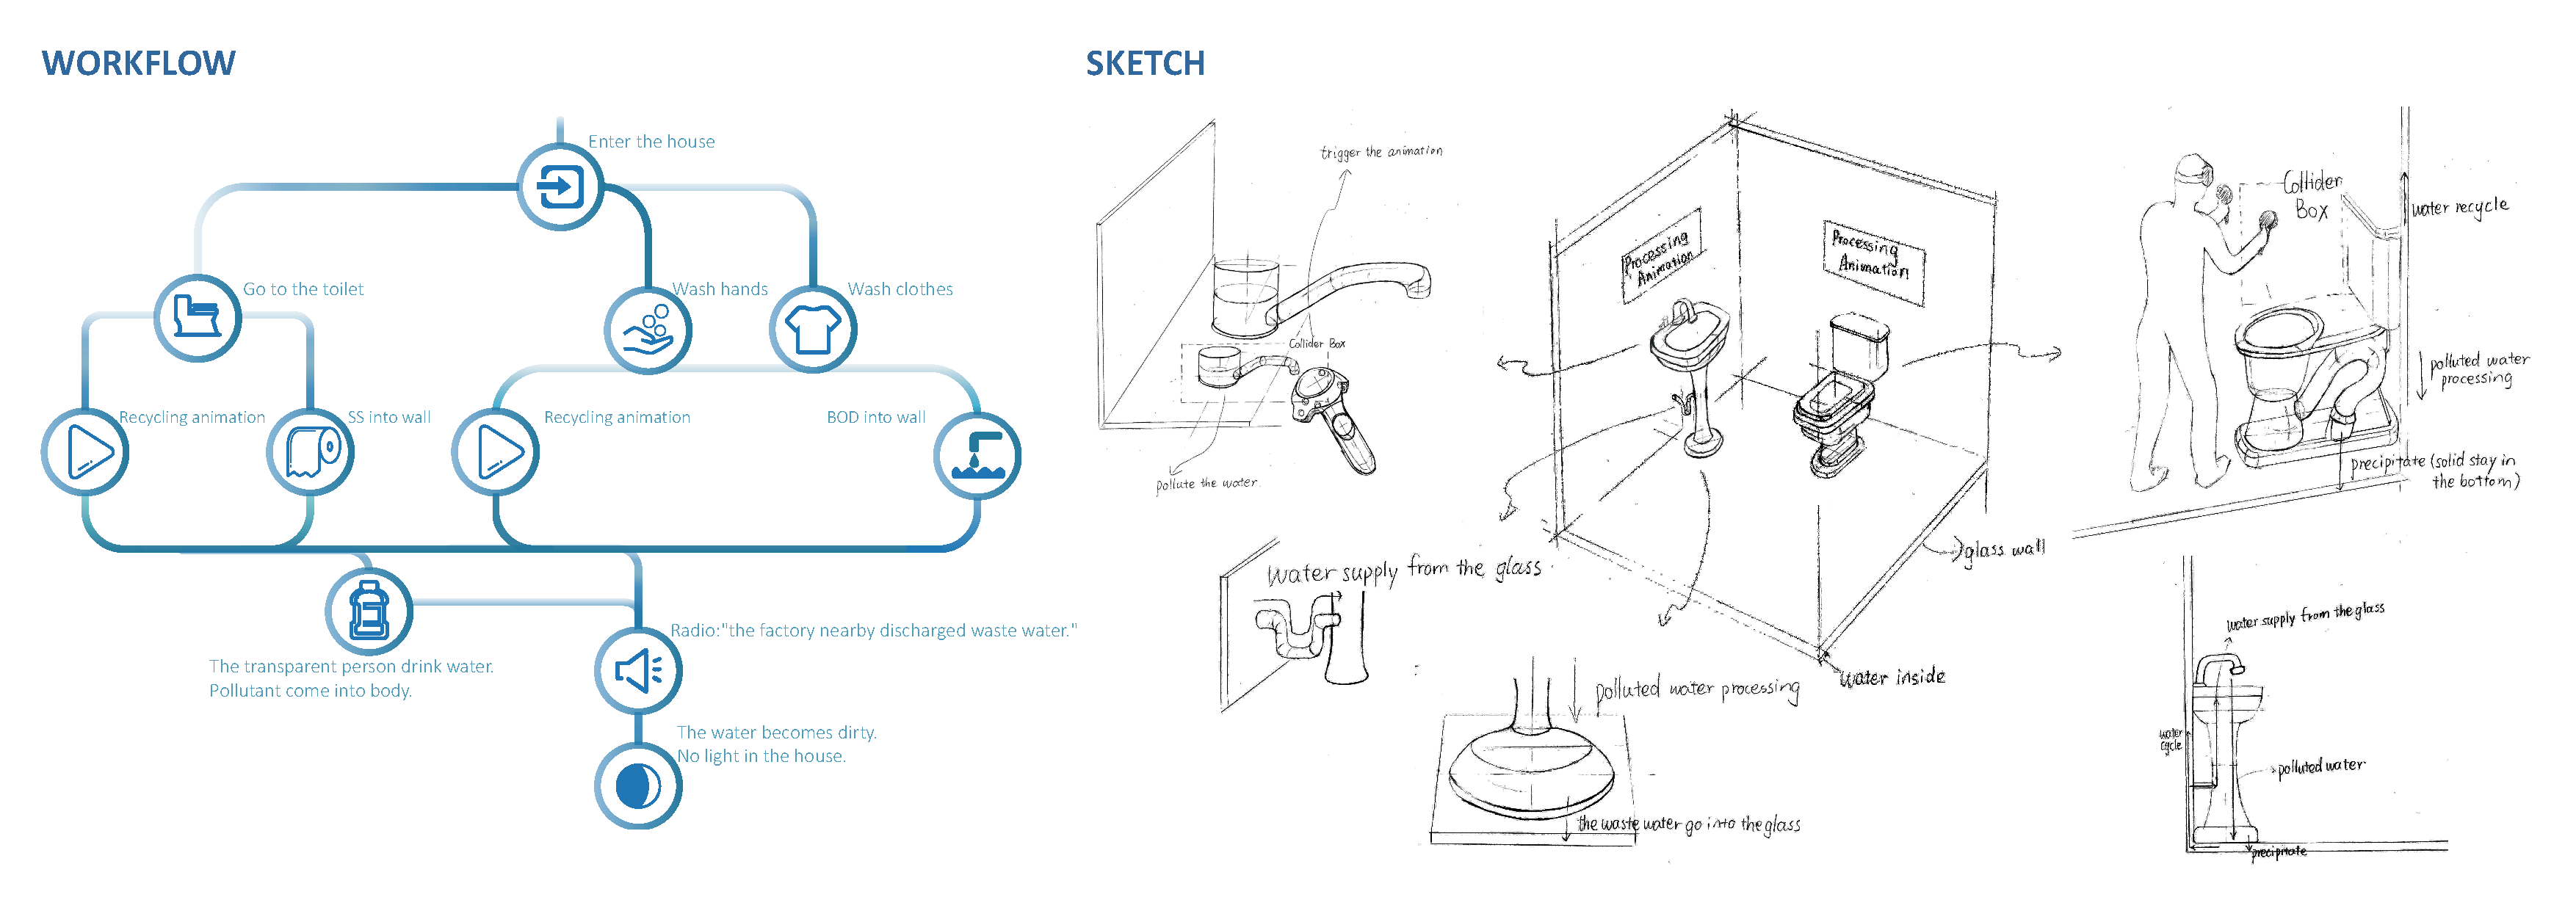 WORKFLOW
Enter the house
Go to the toilet
Wash hands
Wash clothes
Recycling animation
SS into wall
Recycling animation
BOD into wall
The transparent person drink water.
Pollutant come into body.
Radio:"the factory nearby discharged waste water."
The water becomes dirty.
No light in the house.
SKETCH
trigger the animation
Collider Box
pollute the water
Processing
Animation
Processing
Animation
glass wall
water inside
water supply from the glass
polluted water processing
the waste water go into the glass
Collider
Box
water recycle
polluted water
processing
precipitate (solid stay in
the bottom)
water supply from the glass
water
cycle
polluted water
precipitate